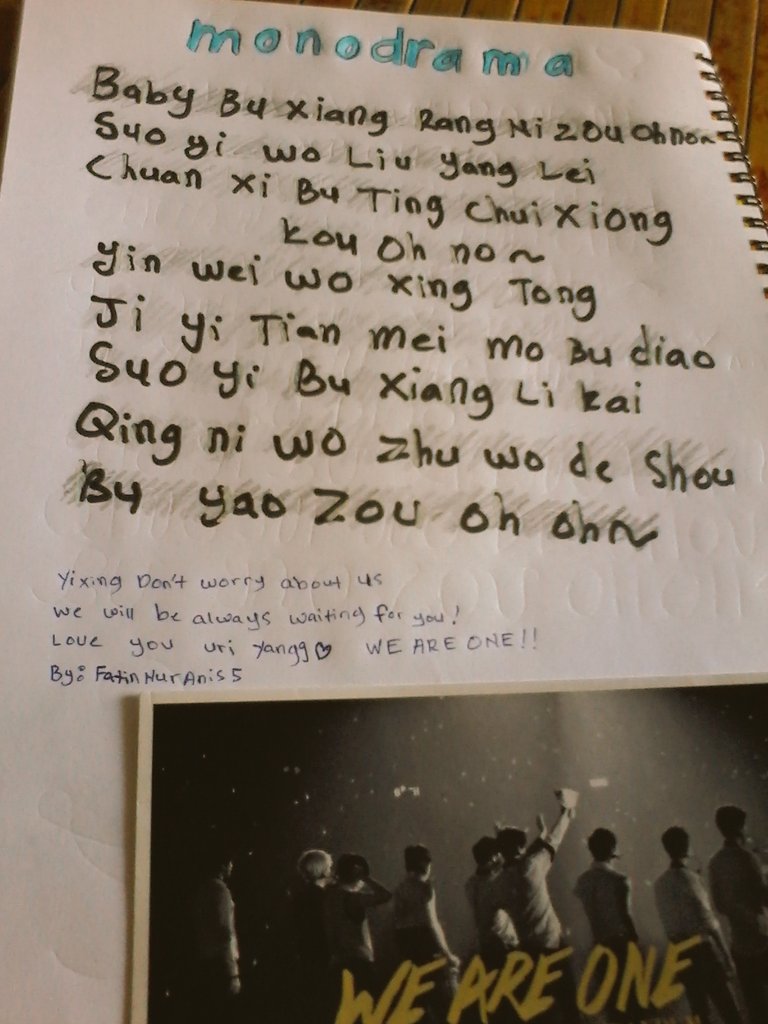 monodrama
Baby Bu xiang Rang Ni zou oh no~
Suo yi wo Liu yang Lei
Chuan xi Bu Ting chui xiong
kou oh no~
yin wei wo xing Tong
Ji yi Tian mei mo Bu diao
Suo yi Bu xiang Li kai
Qing ni wo zhu wo de Shou
Bu yao zou oh oh~
Yixing Don't worry about us
we will be always waiting for you!
Love you uri Yangg♡ WE ARE ONE!!
By: FatinNurAnis5
WE ARE ONE